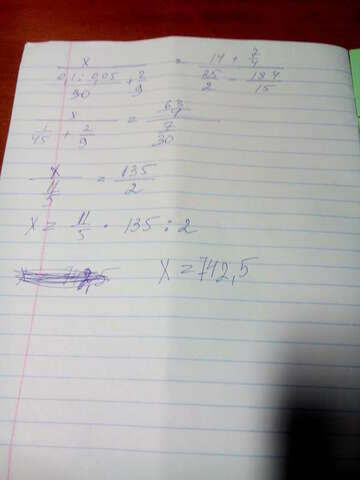 x / ((0,1 : 0,05)/30 + 2/9) = (14 + 7/4) / (25/2 - 184/15)
x / (1/45 + 2/9) = (63/4) / (7/30)
x / (11/5) = 135/2
X = 11/5 · 135 : 2
X = 742,5